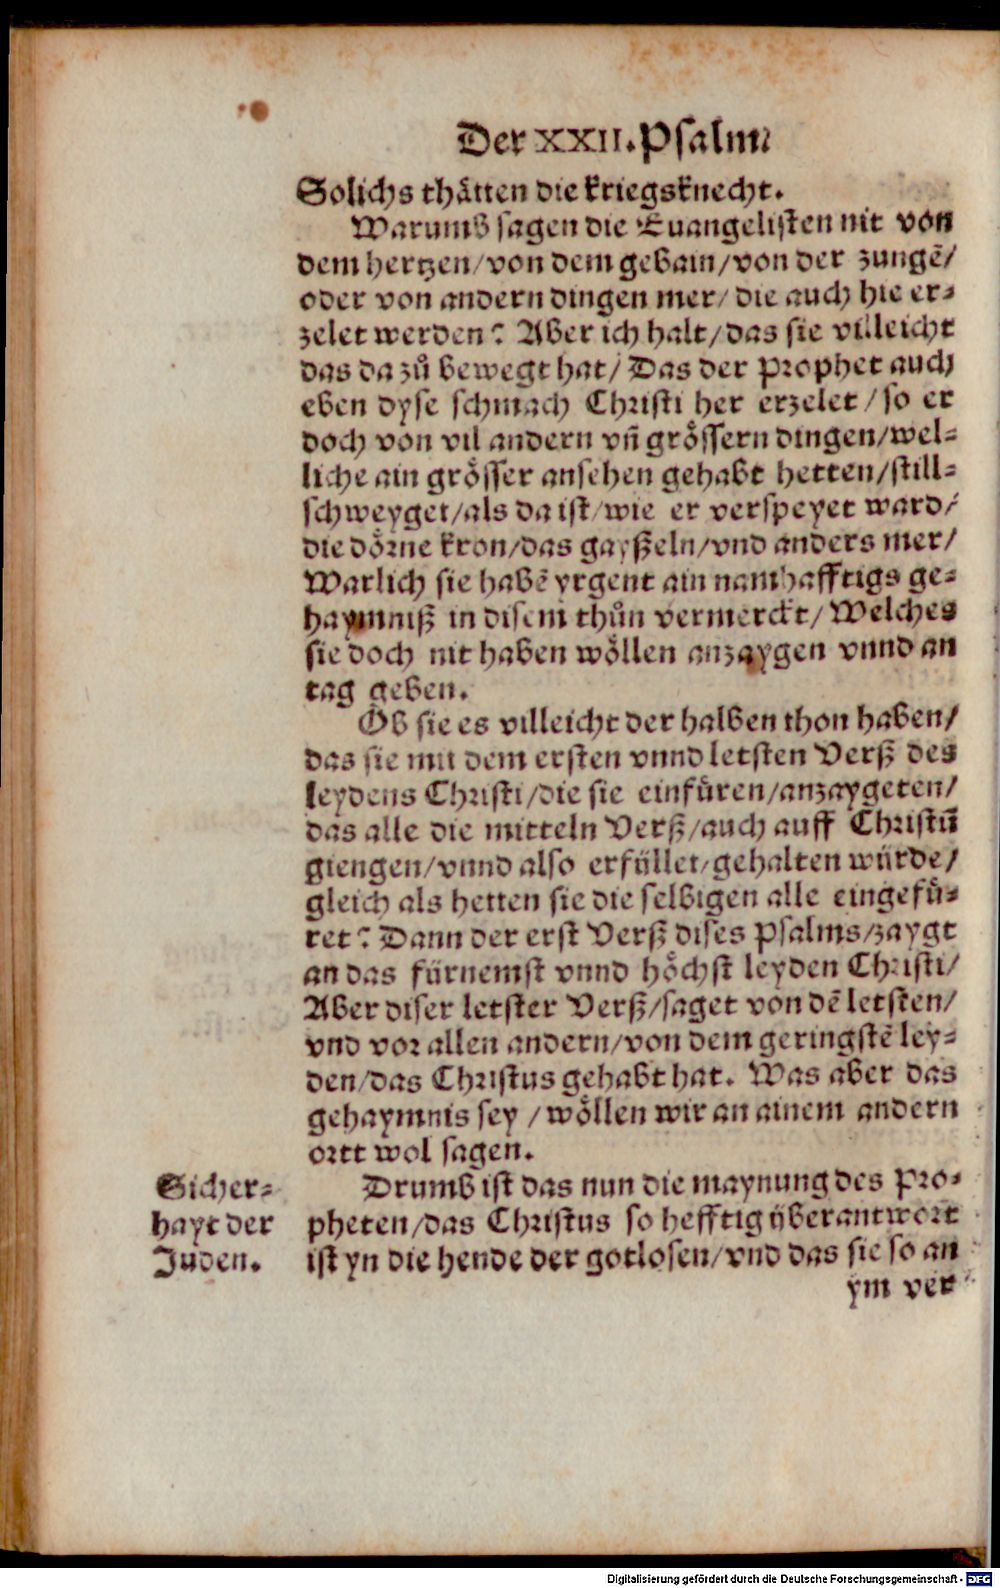 Der XXII. Psalm
Solichs thaͤtten die kriegsknecht.
Warumb sagen die Euangelisten nit von
dem hertzen/von dem gebain/von der zungẽ/
oder von andern dingen mer/ die auch hie er⸗
zelet werden? Aber ich halt/das sie villeicht
das da zuͦ bewegt hat/ Das der Prophet auch
eben dyse schmach Christi her erzelet/so er
doch von vil andern vñ groͤssern dingen/wel⸗
liche ain groͤsser ansehen gehabt hetten/still⸗
schweyget/als da ist/wie er verspeyet ward/
die doͤrne kron/das gayßeln/vnd anders mer/
Warlich sie habẽ yrgent ain namhafftigs ge⸗
haymniß in disem thuͦn vermerckt/ Welches
sie doch nit haben woͤllen anzaygen vnnd an
tag geben.
Ob sie es villeicht der halben thon haben/
das sie mit dem ersten vnnd letsten Verß des
leydens Christi/die sie einfuͤren/anzaygeten/
das alle die mitteln Verß/auch auff Christũ
giengen/vnnd also erfüllet/gehalten würde/
gleich als hetten sie die selbigen alle eingefuͤ⸗
ret? Dann der erst Verß dises Psalms/zaygt
an das fürnemst vnnd hoͤchst leyden Christi/
Aber diser letster Verß/saget von dẽ letsten/
vnd vor allen andern/von dem geringstẽ ley⸗
den/das Christus gehabt hat. Was aber das
gehaymnis sey /woͤllen wir an ainem andern
ortt wol sagen.
Sicher⸗
hayt der
Juden.
Drumb ist das nun die maynung des Pro⸗
pheten/das Christus so hefftig überantwort
ist yn die hende der gotlosen/vnd das sie so an
ym ver⸗
Digitalisierung gefördert durch die Deutsche Forschungsgemeinschaft - DFG